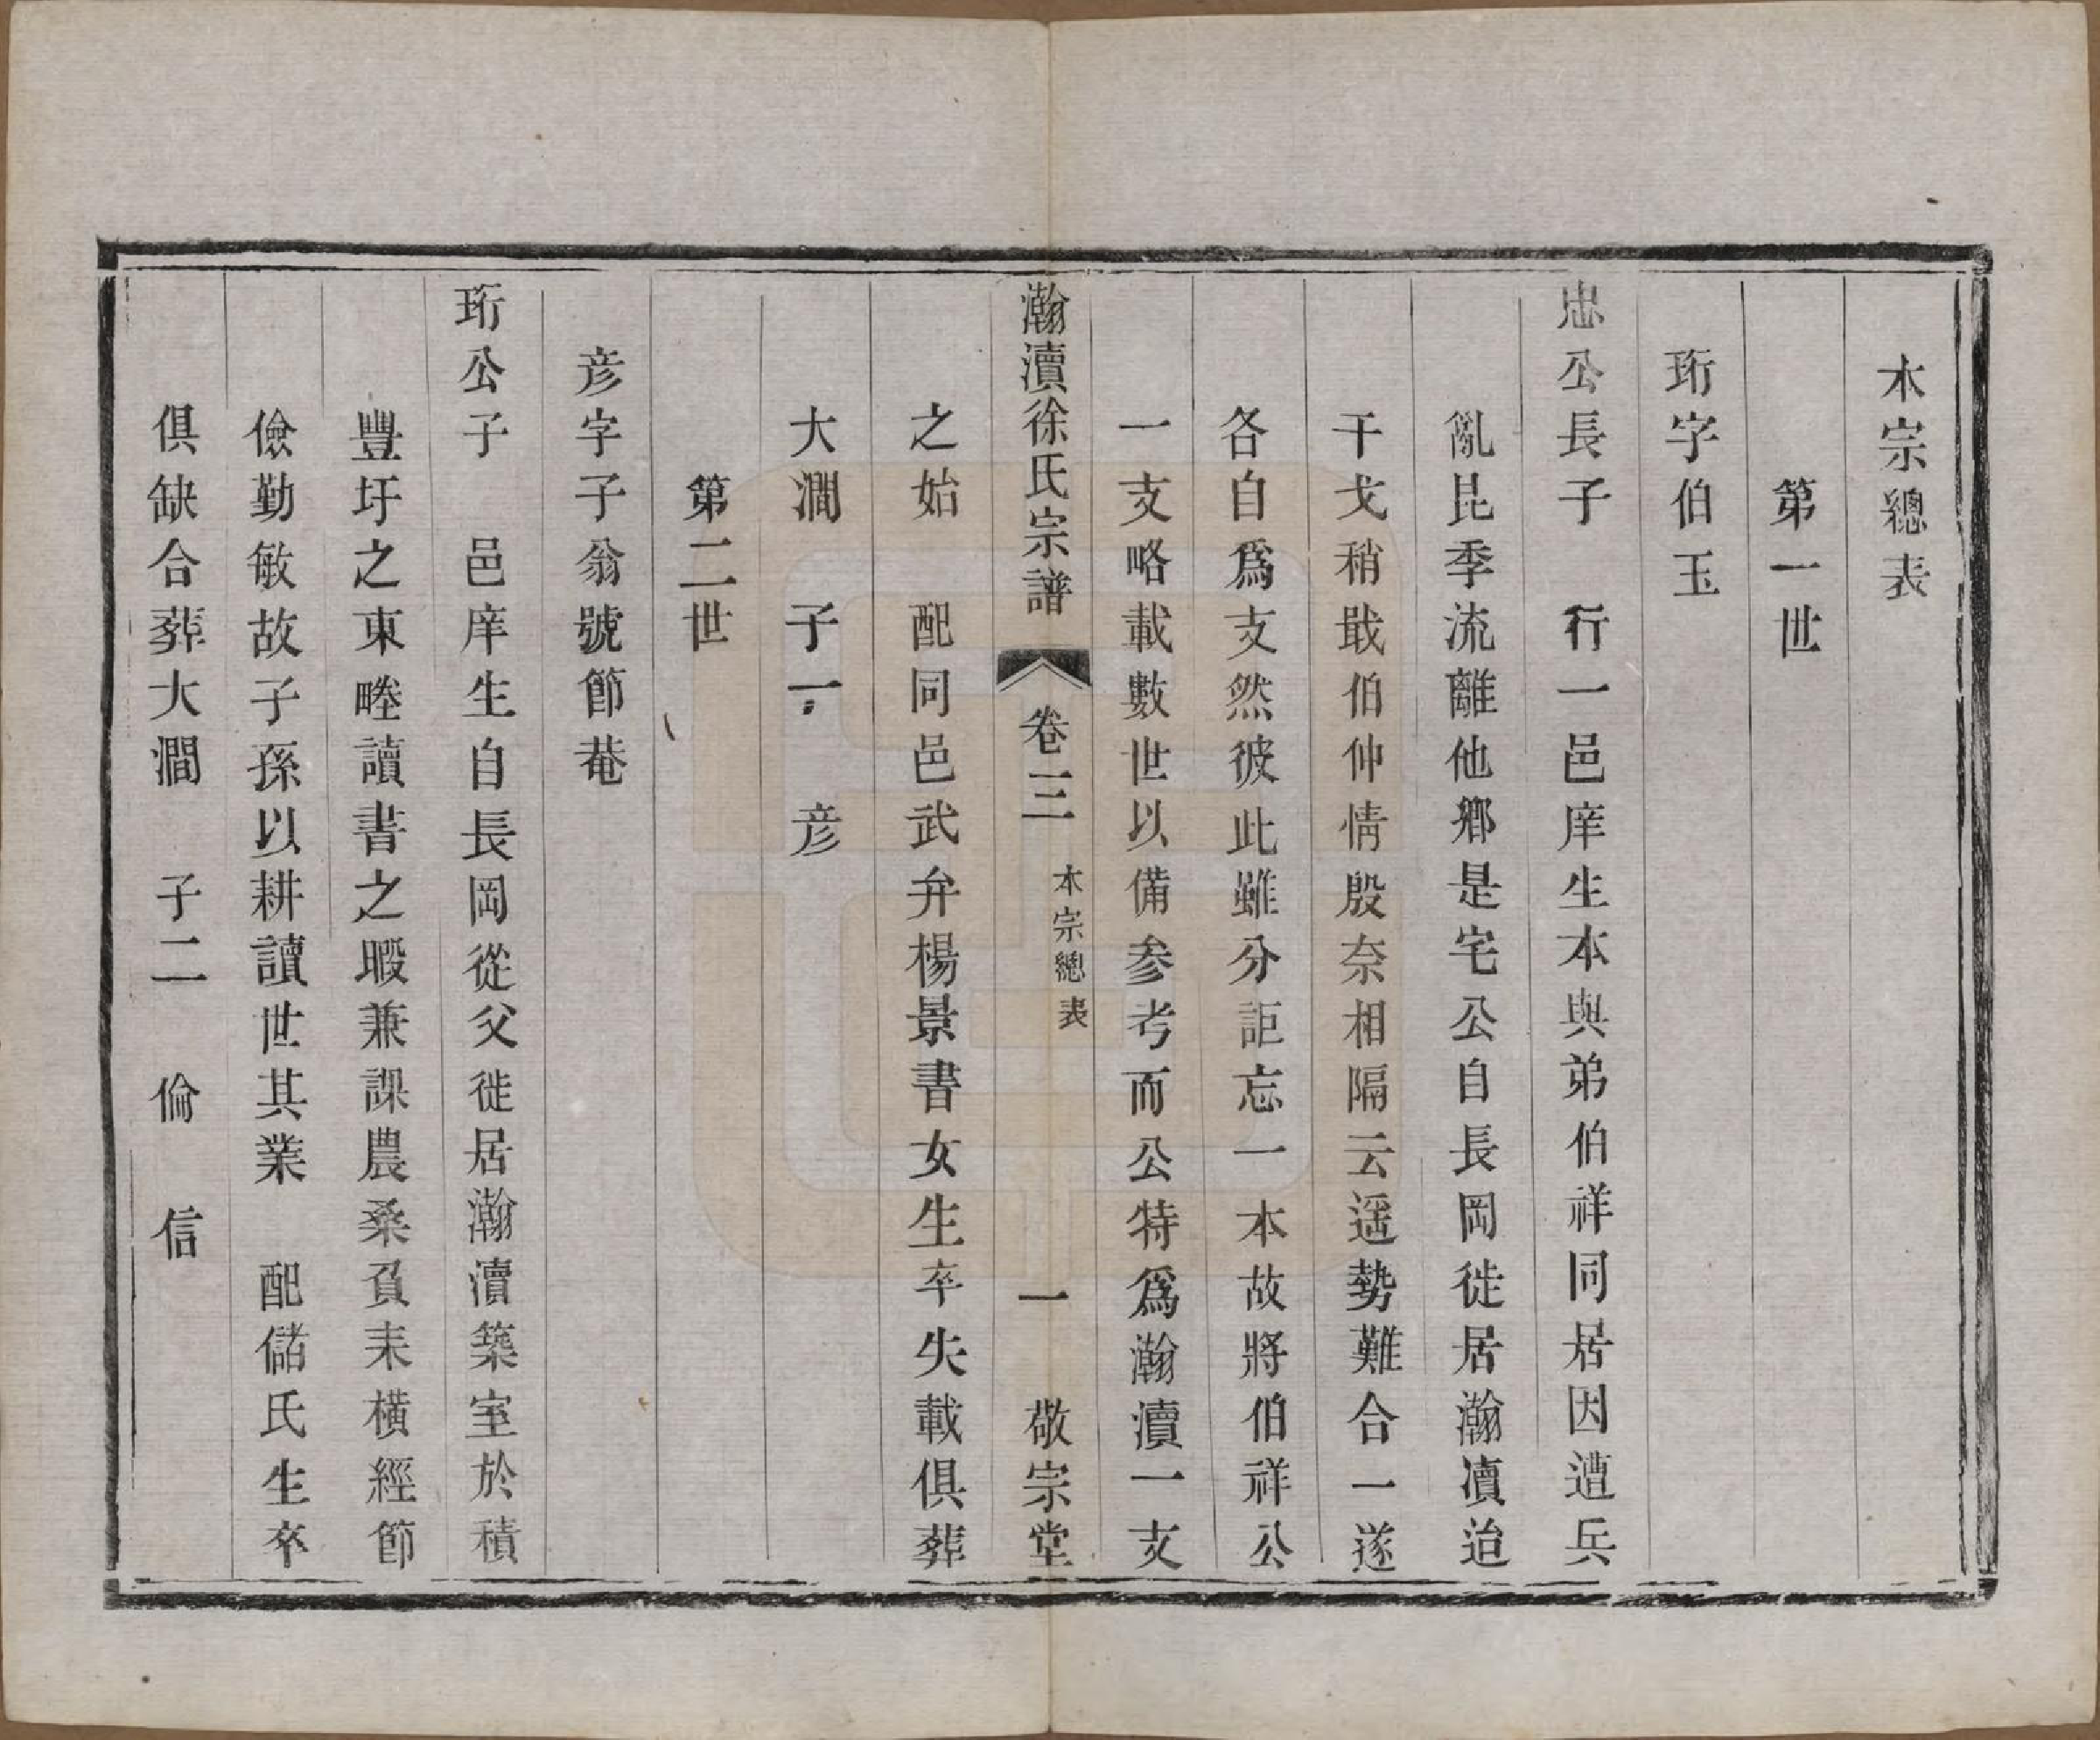 本宗總表
第一世
珩字伯玉
忠公長子　行一邑庠生本與弟伯祥同居因遭兵
亂昆季流離他鄉是宅公自長岡徙居瀚凟迨
干戈稍戢伯仲情殷奈相隔云遥勢難合一遂
各自爲支然彼此雖分詎忘一本故將伯祥公
一支略載數世以備参考而公特爲瀚瀆一支
瀚瀆徐氏宗譜　卷三　本宗總表　一　敬宗堂
之始　配同邑武弁楊景書女生卒失載俱葬
大澗　子一　彦
第二世
彦字子翁號節菴
珩公子　邑庠生自長岡從父徙居瀚瀆築室於積
豐圩之東畻讀書之暇兼課農桑負耒橫經節
儉勤敏故子孫以耕讀世其業　配儲氏生卒
俱缺合葬大澗　子二　倫　信